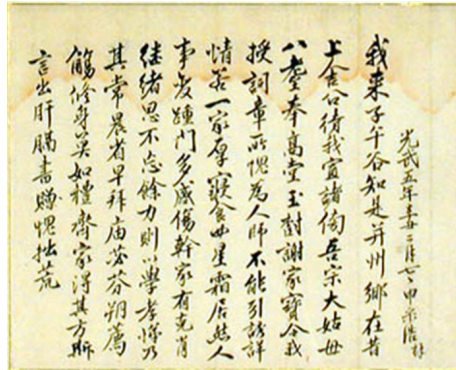 光武五年辛丑二月七日申
我來子午谷知是并州鄉在昔
上舍公待我宣諸吾宗大姑母
八耋奉高堂玉對謝家寶令我
授詞章所愧爲人師不能引詳
情若一家厚寢食四星霜居然人
事変踵門多感傷幹家有克肖
继緖思不忘餘力則以學孝悌乃
其常晨省早拜廟苾芬朔薦
觴修身莫如禮齊家得其方斯
言出肝膈書贈愧拙荒